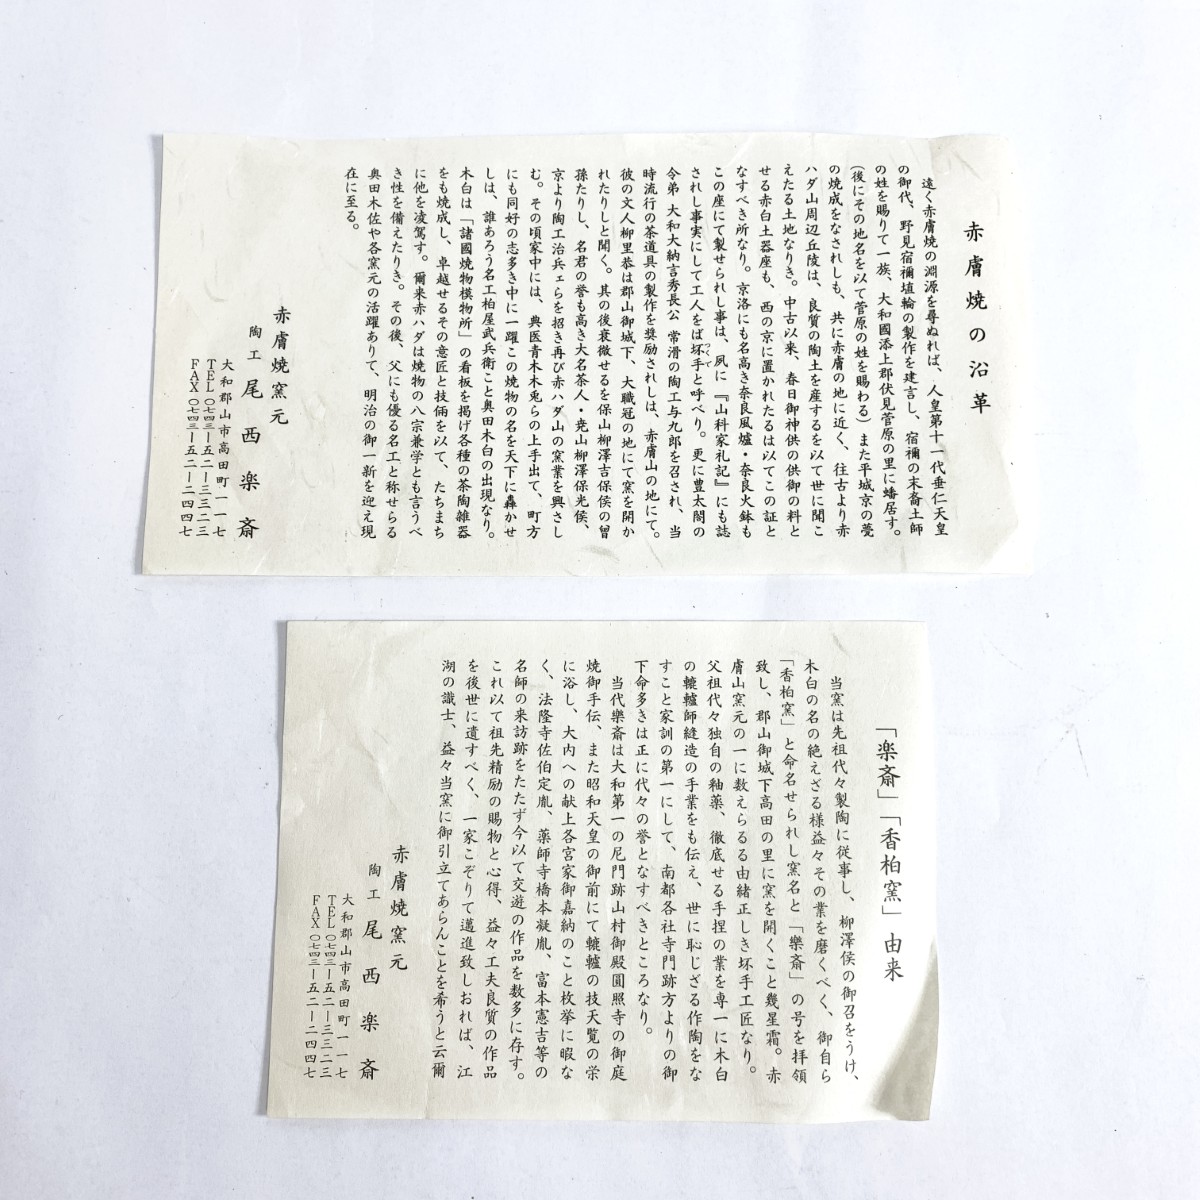 赤膚焼の沿革
遠く赤膚焼の淵源を尋ぬれば、人皇第十一代垂仁天皇
の御代、野見宿禰埴輪の製作を建言し、宿禰の末裔土師
の姓を賜りて一族、大和國添上郡伏見菅原の里に蟠居す。
(後にその地名を以て菅原の姓を賜わる)また平城京の甍
の焼成をなされしも、共に赤膚の地に近く、往古より赤
ハダ山周辺丘陵は、良質の陶土を産するを以て世に聞こ
えたる土地なりき。中古以来、春日御神供の供御の料と
せる赤白土器座も、西の京に置かれたるは以てこの証と
なすべき所なり。京洛にも名高き奈良風爐・奈良火鉢も
この座にて製せられし事は、夙に『山科家礼記』にも誌
されし事実にして工人をば坏手と呼べり。更に豊太閤の
つくで
令弟 大和大納言秀長公 常滑の陶工与九郎を召され、当
時流行の茶道具の製作を奨励されしは、赤膚山の地にて。
彼の文人柳里恭は郡山御城下、大職冠の地にて窯を開か
れたりしと聞く。其の後衰微せるを保山柳澤吉保侯の曽
孫たりし、名君の誉も高き大名茶人・尭山柳澤保光侯、
京より陶工治兵ェらを招き再び赤ハダ山の窯業を興さし
む。その頃家中には、典医青木木兎らの上手出て、町方
にも同好の志多き中に一躍この焼物の名を天下に轟かせ
しは、誰あろう名工柏屋武兵衛こと奥田木白の出現なり。
木白は「諸國焼物模物所」の看板を掲げ各種の茶陶雑器
をも焼成し、卓越せるその意匠と技倆を以て、たちまち
に他を凌駕す。爾来赤ハダは焼物の八宗兼学とも言うべ
き性を備えたりき。その後、父にも優る名工と称せらる
奥田木佐や各窯元の活躍ありて、明治の御一新を迎え現
在に至る。
赤膚焼窯元
陶工 尾西楽斎
大和郡山市高田町一一七
TEL〇七四三―五二―三三二三
FAX〇七四三―五二―二四四七
「楽斎」「香柏窯」由来
当窯は先祖代々製陶に従事し、柳澤侯の御召をうけ、
木白の名の絶えざる様益々その業を磨くべく、御自ら
「香柏窯」と命名せられし窯名と「樂斎」の号を拝領
致し、郡山御城下高田の里に窯を開くこと幾星霜。赤
膚山窯元の一に数えらるる由緒正しき坏手工匠なり。
父祖代々独自の釉薬、徹底せる手捏の業を専一に木白
の轆轤師縫造の手業をも伝え、世に恥じざる作陶をな
すこと家訓の第一にして、南都各社寺門跡方よりの御
下命多きは正に代々の誉となすべきところなり。
当代樂斎は大和第一の尼門跡山村御殿圓照寺の御庭
焼御手伝、また昭和天皇の御前にて轆轤の技天覧の栄
に浴し、大内への献上各宮家御嘉納のこと枚挙に暇な
く、法隆寺佐伯定胤、薬師寺橋本凝胤、富本憲吉等の
名師の来訪跡をたたず今以て交遊の作品を数多に存す。
これ以て祖先精励の賜物と心得、益々工夫良質の作品
を後世に遺すべく、一家こぞりて邁進致しおれば、江
湖の識士、益々当窯に御引立てあらんことを希うと云爾
赤膚焼窯元
陶工 尾西楽斎
大和郡山市高田町一一七
TEL〇七四三―五二―三三二三
FAX〇七四三―五二―二四四七